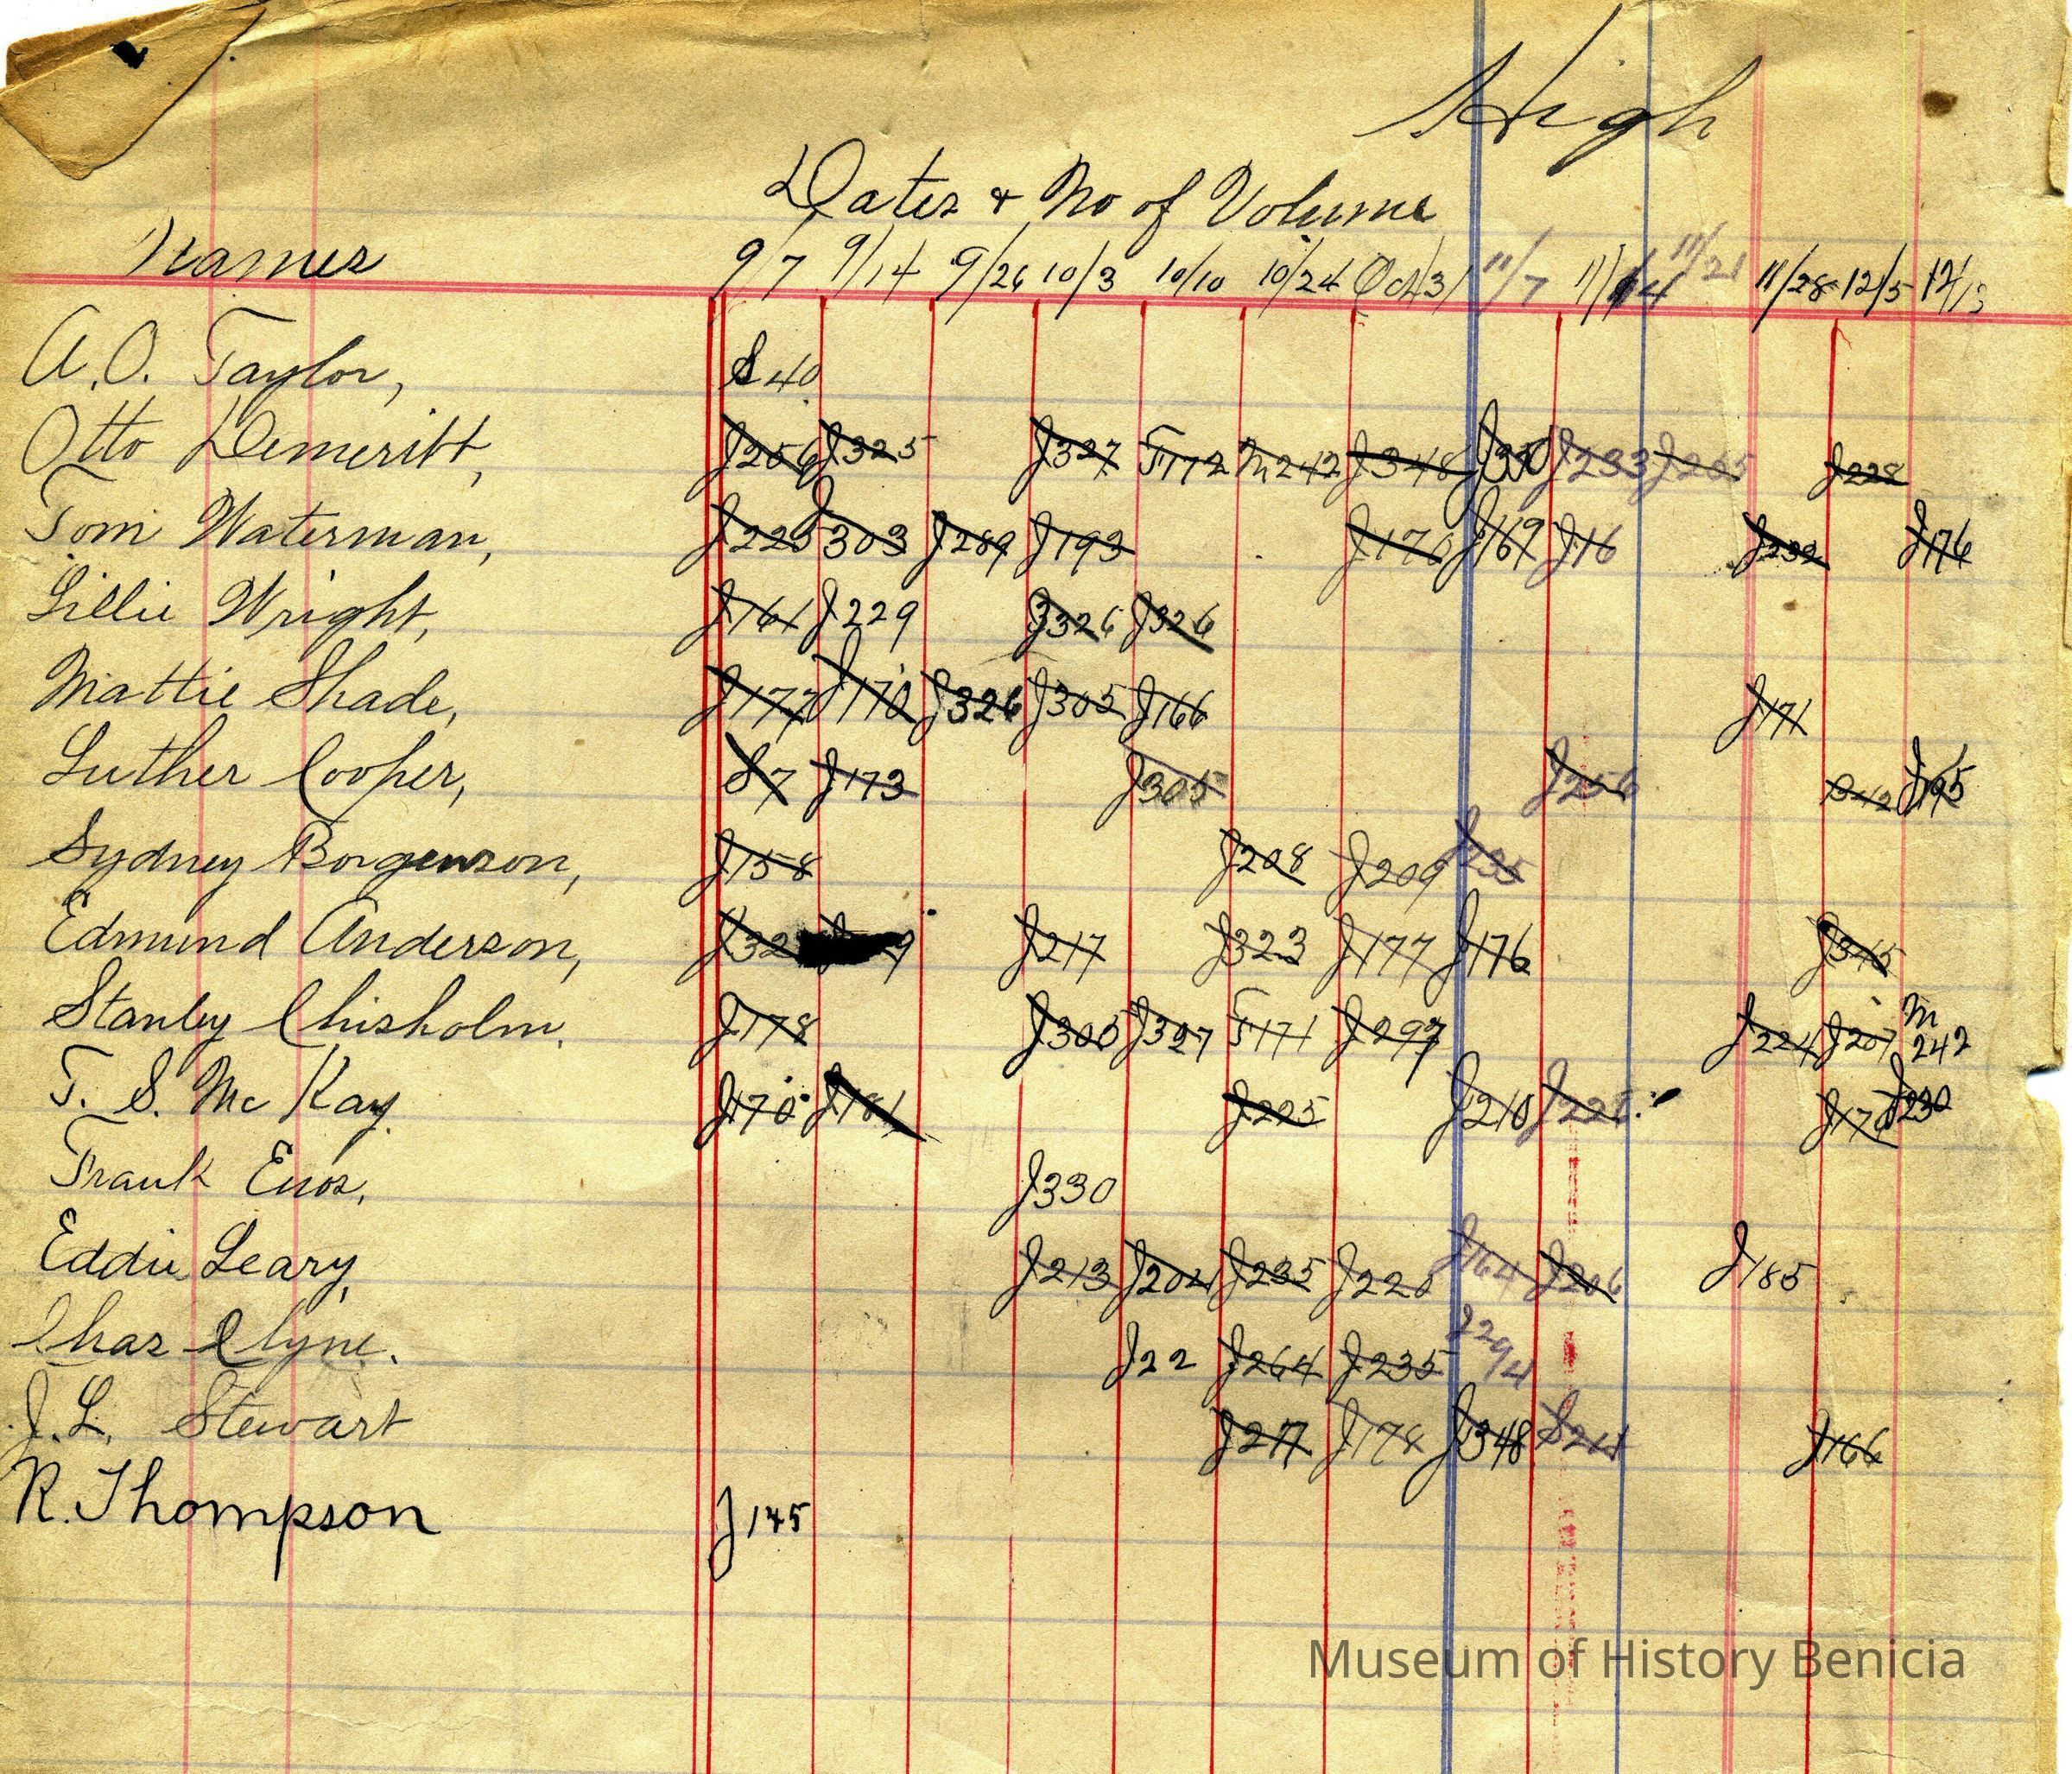 High
Dates & No of Volume
Names 9/7 9/14 9/26 10/3 10/10 10/24 Oct 31 11/7 11/14 11/21 11/28 12/5 12/13
A.O. Taylor, S40
Otto Demeritt, J256 J325 J327 F172 M242 J348 J330 J233 J265 J228
Tom Waterman, J223 303 J289 J193 J170 J169 J16 J232 J176
Lillie Wright, J161 J229 J326 J326
Mattie Shade, J177 J170 J326 J305 J166 J171
Luther Cooper, S7 J173 J305 J256 J195
Sydney Borgenson, J158 J208 J209 J235
Edmund Anderson, J217 J323 J177 J176 J345
Stanley Chisholm, J178 J305 J327 F171 J297 J224 J207 M 242
T. S. Mc Kay. J170 J181 J225 J210 J170 J230
Frank Enos, J330
Eddie Leary, J213 J204 J235 J220 J164 J206 J185
Chas Clyne. J22 J264 J235 J294
J. L. Stewart J277 J178 J348 J166
R. Thompson J145
Museum of History Benicia